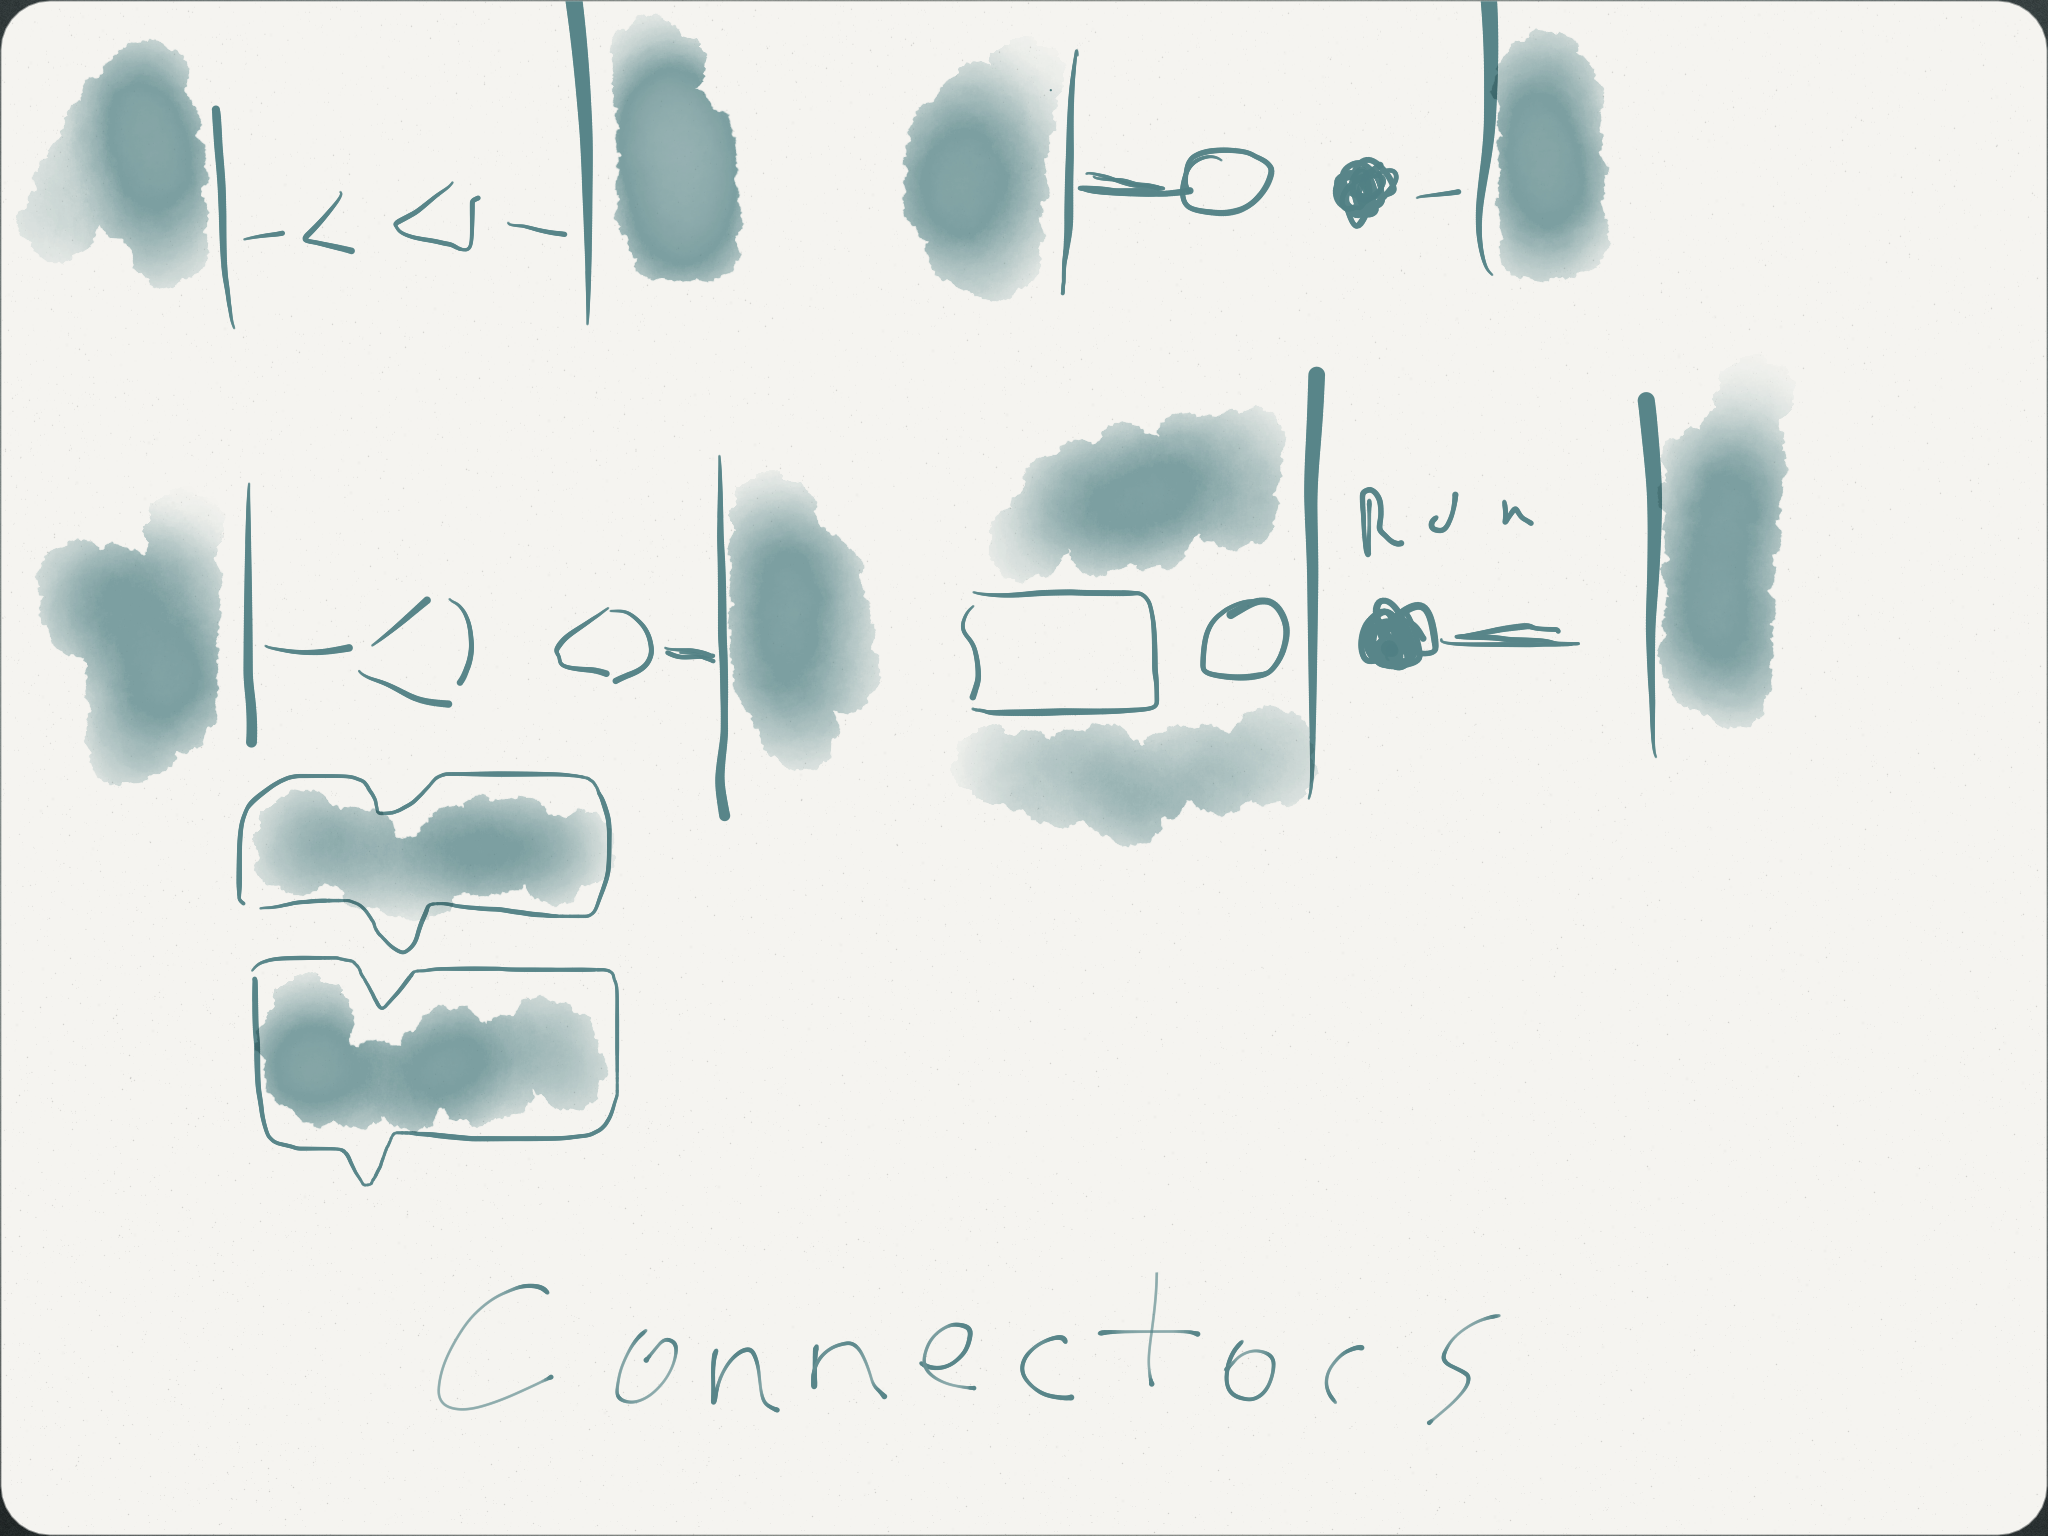 Run
Connectors